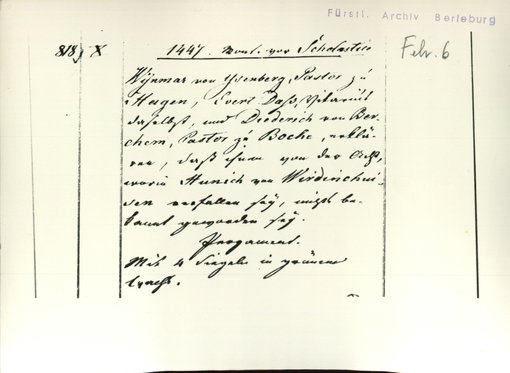 Fürstl. Archiv Berleburg
Febr. 6
818 X
1447. Mont. vor Scholastice
Wynmar von Ysenberg, Pastor zu
Hagen, Evert Daß, Vikarius
daselbst, und Diederich von Ber-
chem, Pastor zu Boche, erklä-
ren, daß ihnen von der Acht,
worin Hunich von Wirdinchui-
sen verfallen sey, nichts be-
kannt geworden sey.
Pergament.
Mit 4 Siegeln in grünem
Wachs.